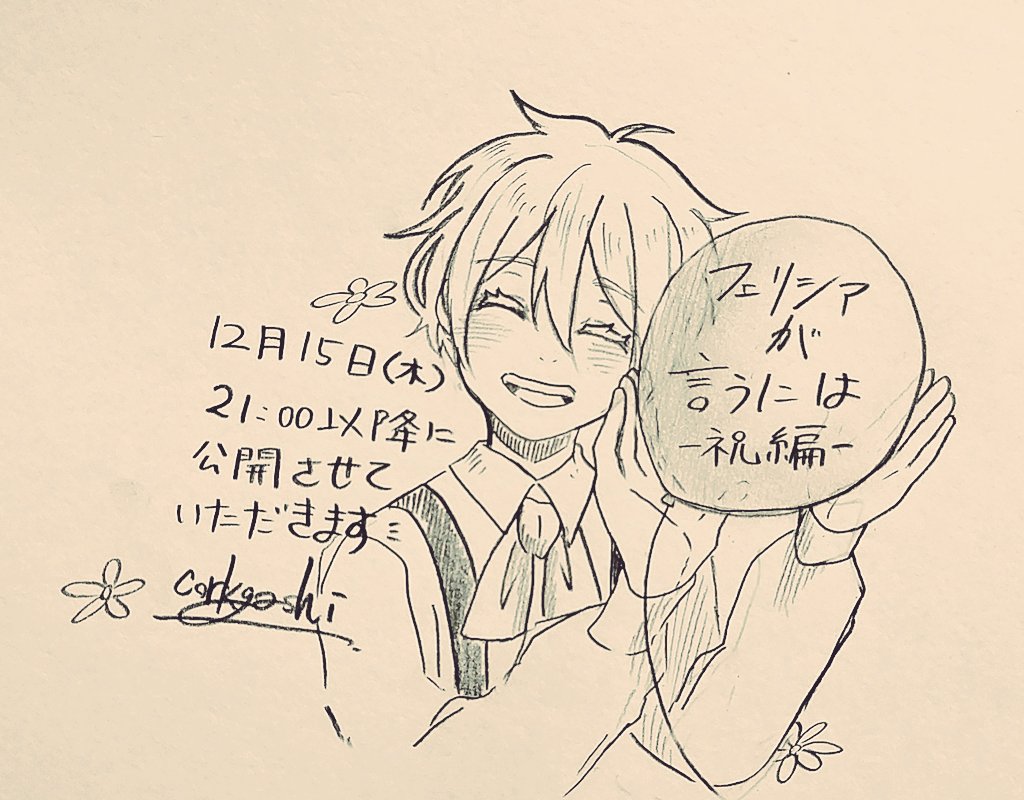 12月15日(木)
21:00以降に
公開させて
いただきます
corkgashi
フェリシア
が
言うには
-祝編-